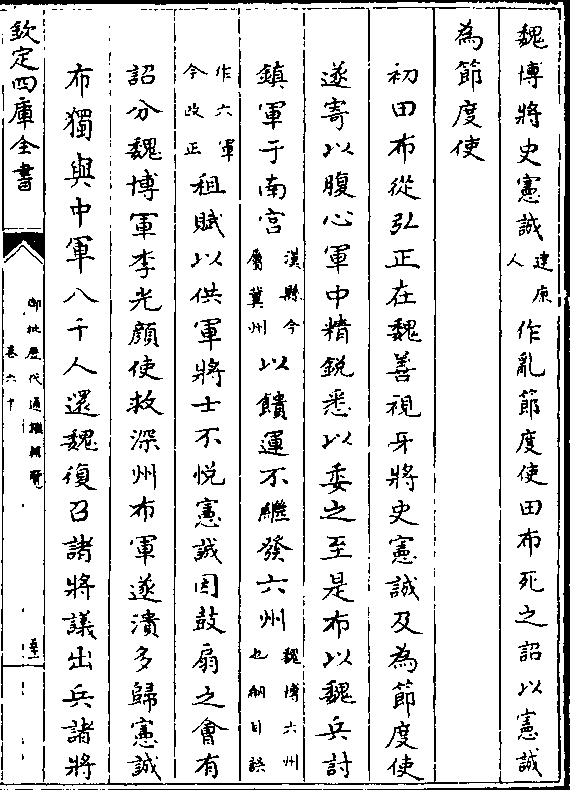 魏博將史憲誠建康人作亂節度使田布死之詔以憲誠
為節度使
初田布從弘正在魏善視牙將史憲誠及為節度使
遂寄以腹心軍中精銳悉以委之至是布以魏兵討
鎮軍于南宮漢縣今屬冀州以饋運不繼發六州魏博六州也綱目誤
作六軍今改正租賦以供軍將士不悅憲誠因鼓扇之會有
詔分魏博軍李光顏使救深州布軍遂潰多歸憲誠
布獨與中軍八千人還魏復召諸將議出兵諸將
欽定四庫全書
御批歷代通鑑輯覽
卷六十